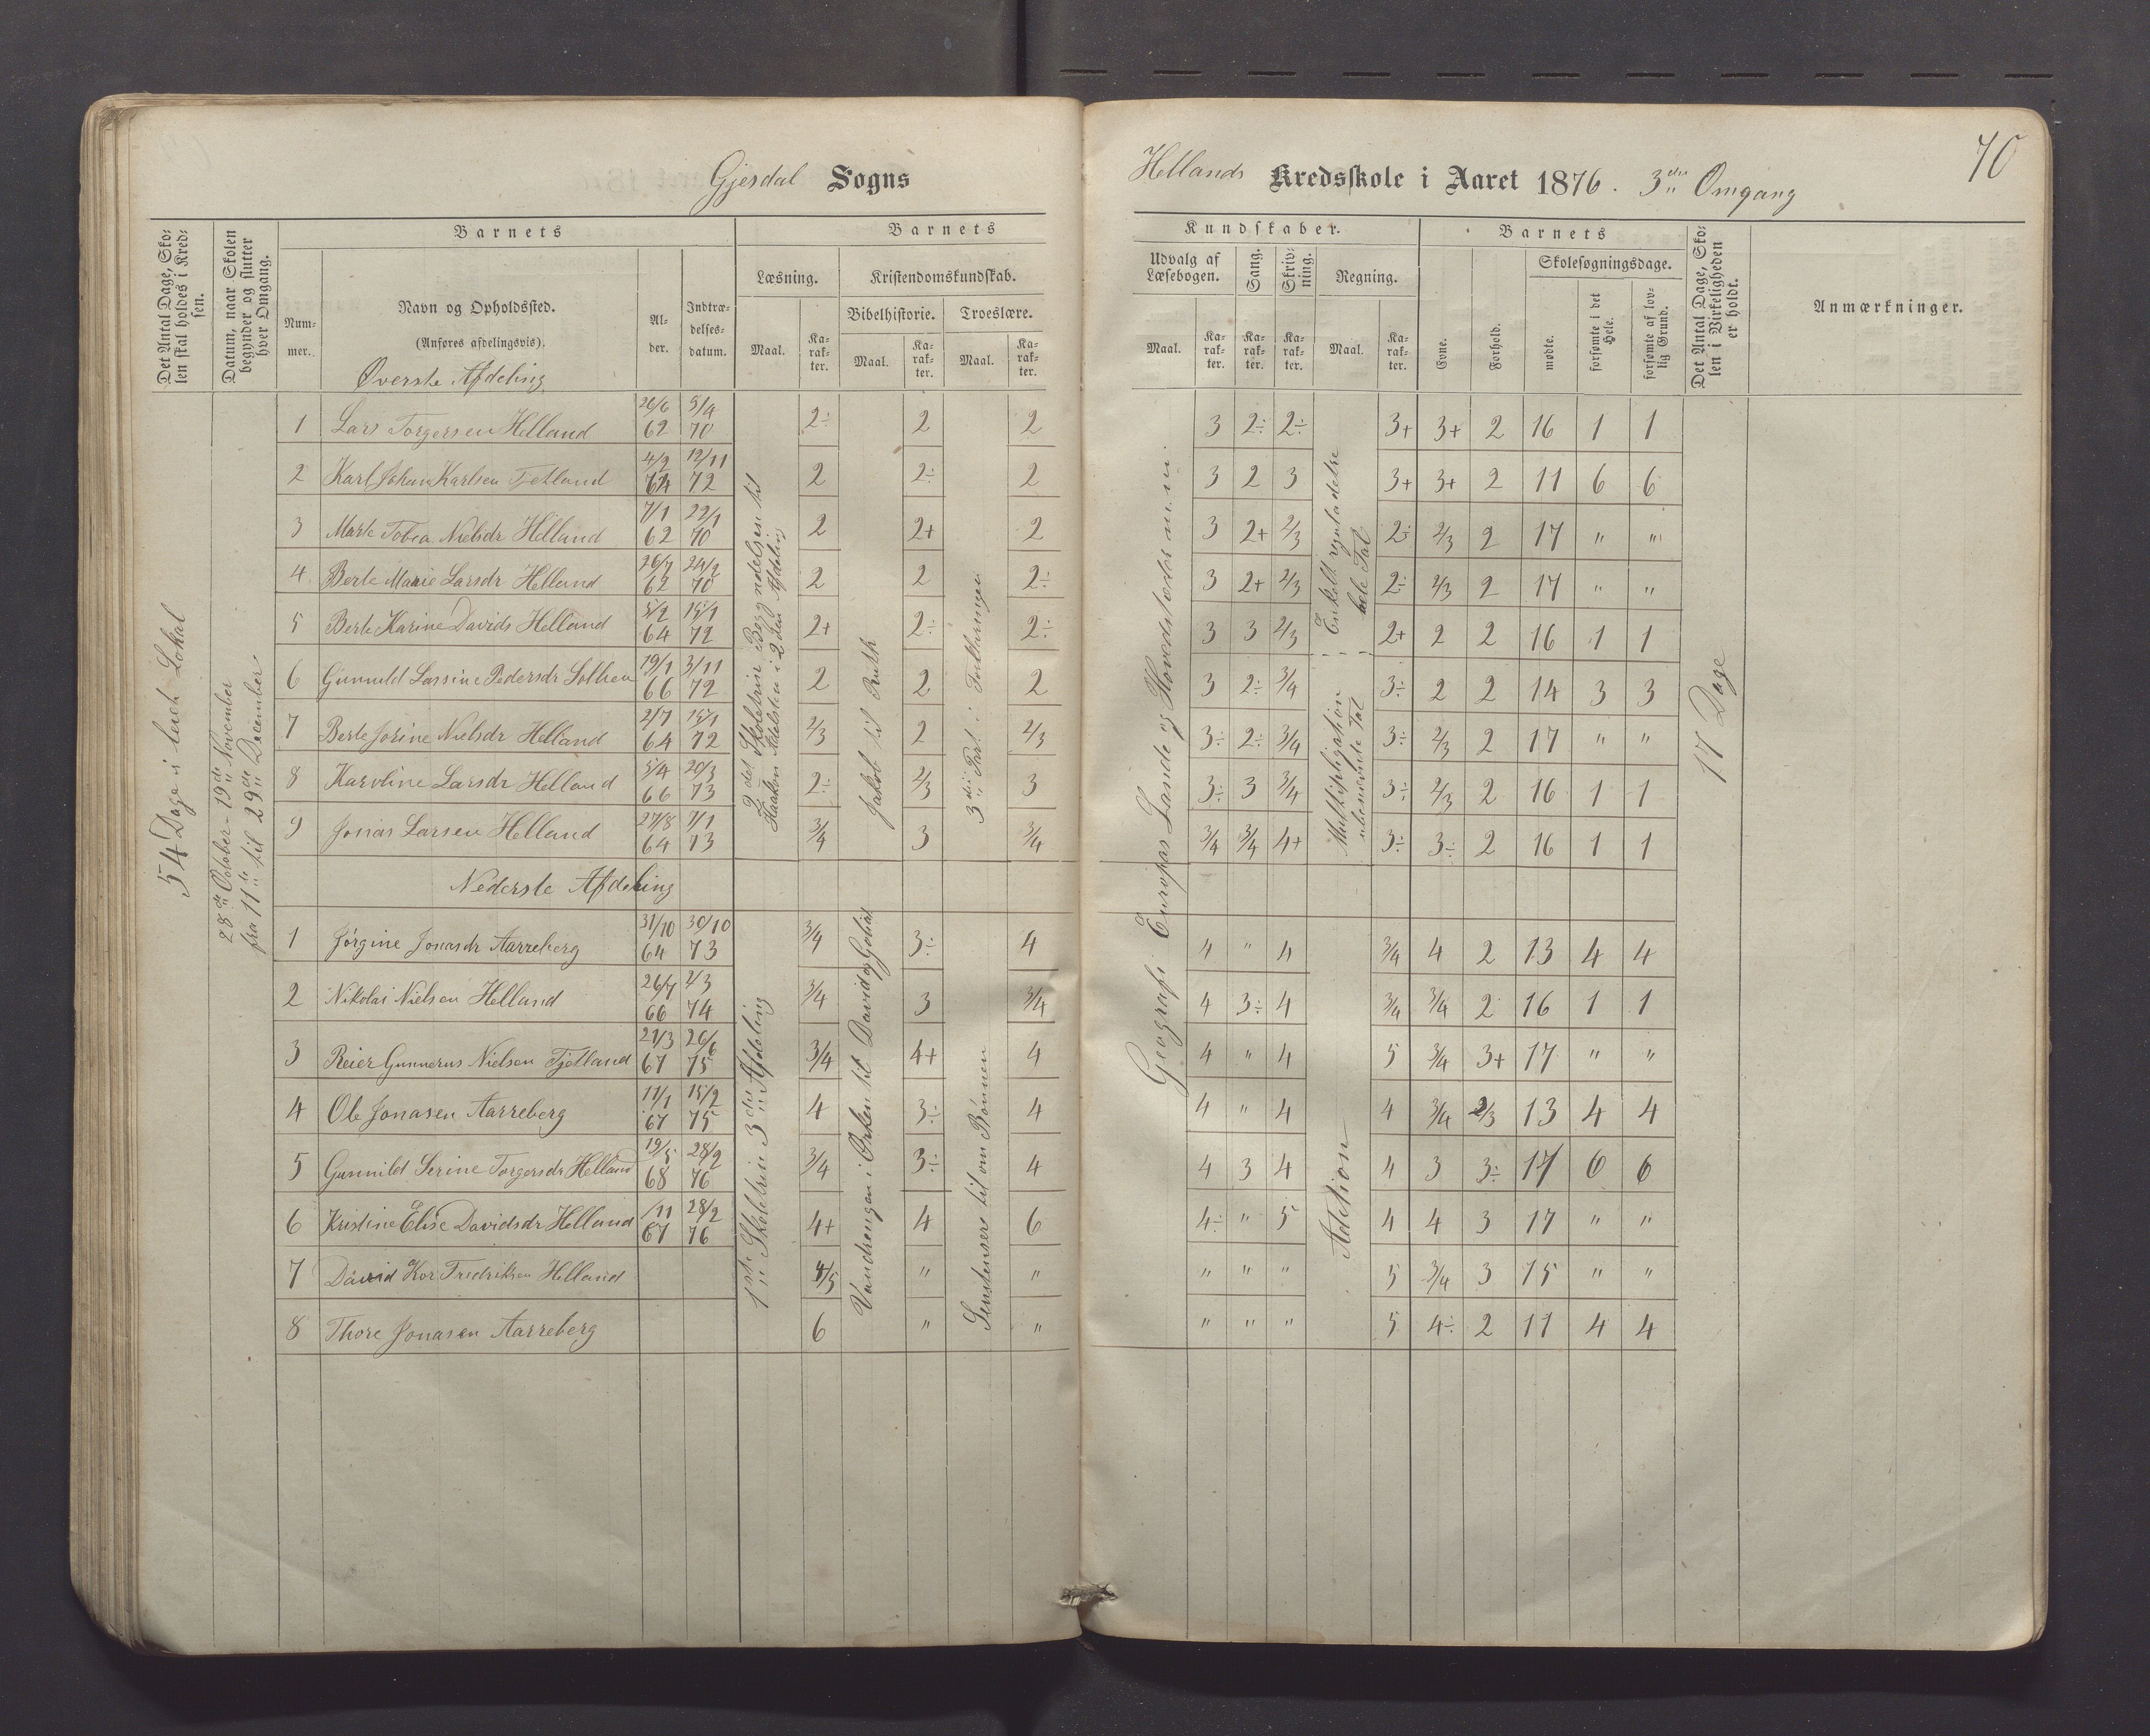 Gjesdal Sogns
Hellands Kredsskole i Aaret 1876. 3die Omgang
70
Det Antal Dage, Skolen skal holdes i Kredsen.
Datum, naar Skolen begynder og slutter hver Omgang.
Barnets
Nummer.
Navn og Opholdssted.
(Anføres afdelingsvis).
Alder.
Indtrædelsesdatum.
Barnets
Læsning.
Kristendomskundskab.
Bibelhistorie.
Troeslære.
Maal.
Karakter.
Maal.
Karakter.
Maal.
Karakter.
Kundskaber.
Udvalg af Læsebogen.
Sang.
Skrivning.
Regning.
Maal.
Karakter.
Karakter.
Karakter.
Maal.
Karakter.
Barnets
Evne.
Forhold.
Skolesøgningsdage.
mødte.
forsømte i det Hele.
forsømte af lovlig Grund.
Det Antal Dage, Skolen i Virkeligheden er holdt.
Anmærkninger.
54 Dage i leiet Lokal
28de October - 19de November
fra 11te til 29de December
Øverste Afdeling
1 Lars Torgersen Helland 26/6 62 5/4 70 2÷ 2 2 3 2÷ 2÷ 3+ 3+ 2 16 1 1
2 Karl Johan Karlsen Tjetland 4/2 64 12/11 72 2 2÷ 2 3 2 3 3+ 3+ 2 11 6 6
3 Marte Tobea Nielsdr Helland 7/1 62 22/1 70 2 2+ 2 3 2+ 2/3 2÷ 2/3 2 17 " "
4 Berte Marie Larsdr Helland 26/7 62 24/2 70 2 2 2÷ 3 2+ 2/3 2÷ 2/3 2 17 " "
5 Berte Karine Davids Helland 5/2 64 15/1 72 2+ 2÷ 2÷ 3 3 2/3 2+ 2 2 16 1 1
6 Gunnild Lassine Pedersdr 19/1 66 3/11 72 2 2 2 3 2÷ 3/4 3÷ 2 2 14 3 3
7 Berte Jorine Nielsdr Helland 2/7 64 15/1 72 2/3 2 2/3 3÷ 2÷ 3/4 3÷ 2/3 2 17 " "
8 Karoline Larsdr Helland 5/4 66 20/3 73 2÷ 2/3 3 3÷ 3 3/4 3÷ 2/3 2 16 1 1
9 Jonas Larsen Helland 27/8 64 7/1 73 3/4 3 3/4 3/4 3/4 4+ 3÷ 3÷ 2 16 1 1
2det Skoletrin Begyndelsen til
Haakon Adelsten i 2den Afdeling
Jakob til Ruth
3die Part i
Geografi Europas Lande og Hovedstæder m.m.
Enkelt regutadetri
hele Tal
Multiplijation
ubenævnte Tal
17 Dage
Nederste Afdeling
1 Jørgine Jonasdr Aarreberg 31/10 64 30/10 73 3/4 3÷ 4 4 " 4 3/4 4 2 13 4 4
2 Nikolai Nielsen Helland 26/7 66 2/3 74 3/4 3 3/4 4 3÷ 4 3/4 3/4 2 16 1 1
3 Reier Gunnerus Nielsen Tjetland 21/3 67 26/6 75 3/4 4+ 4 4 " 4 5 3/4 3+ 17 " "
4 Ole Jonasen Aarreberg 11/1 67 15/2 75 4 3÷ 4 4 " 4 4 3/4 2/3 13 4 4
5 Gunnild Serine Torgersdr Helland 19/5 68 28/2 76 3/4 3÷ 4 4 3 4 4 3 3÷ 17 6 6
6 Kristine Elise Davidsdr Helland /11 67 28/2 76 4+ 4 6 4÷ " 5 4 4 3 17 " "
7 David Kor Fredriksen Helland 4/5 " " " " " 5 3/4 3 15 " "
8 Thore Jonasen Aarreberg 6 " " " " " 5 4÷ 2 11 4 4
1ste Skoletrin 3die Afdeling
Vandrengen i Ørken til David og Goliat
Sentensere til om Bønnen
Adetion